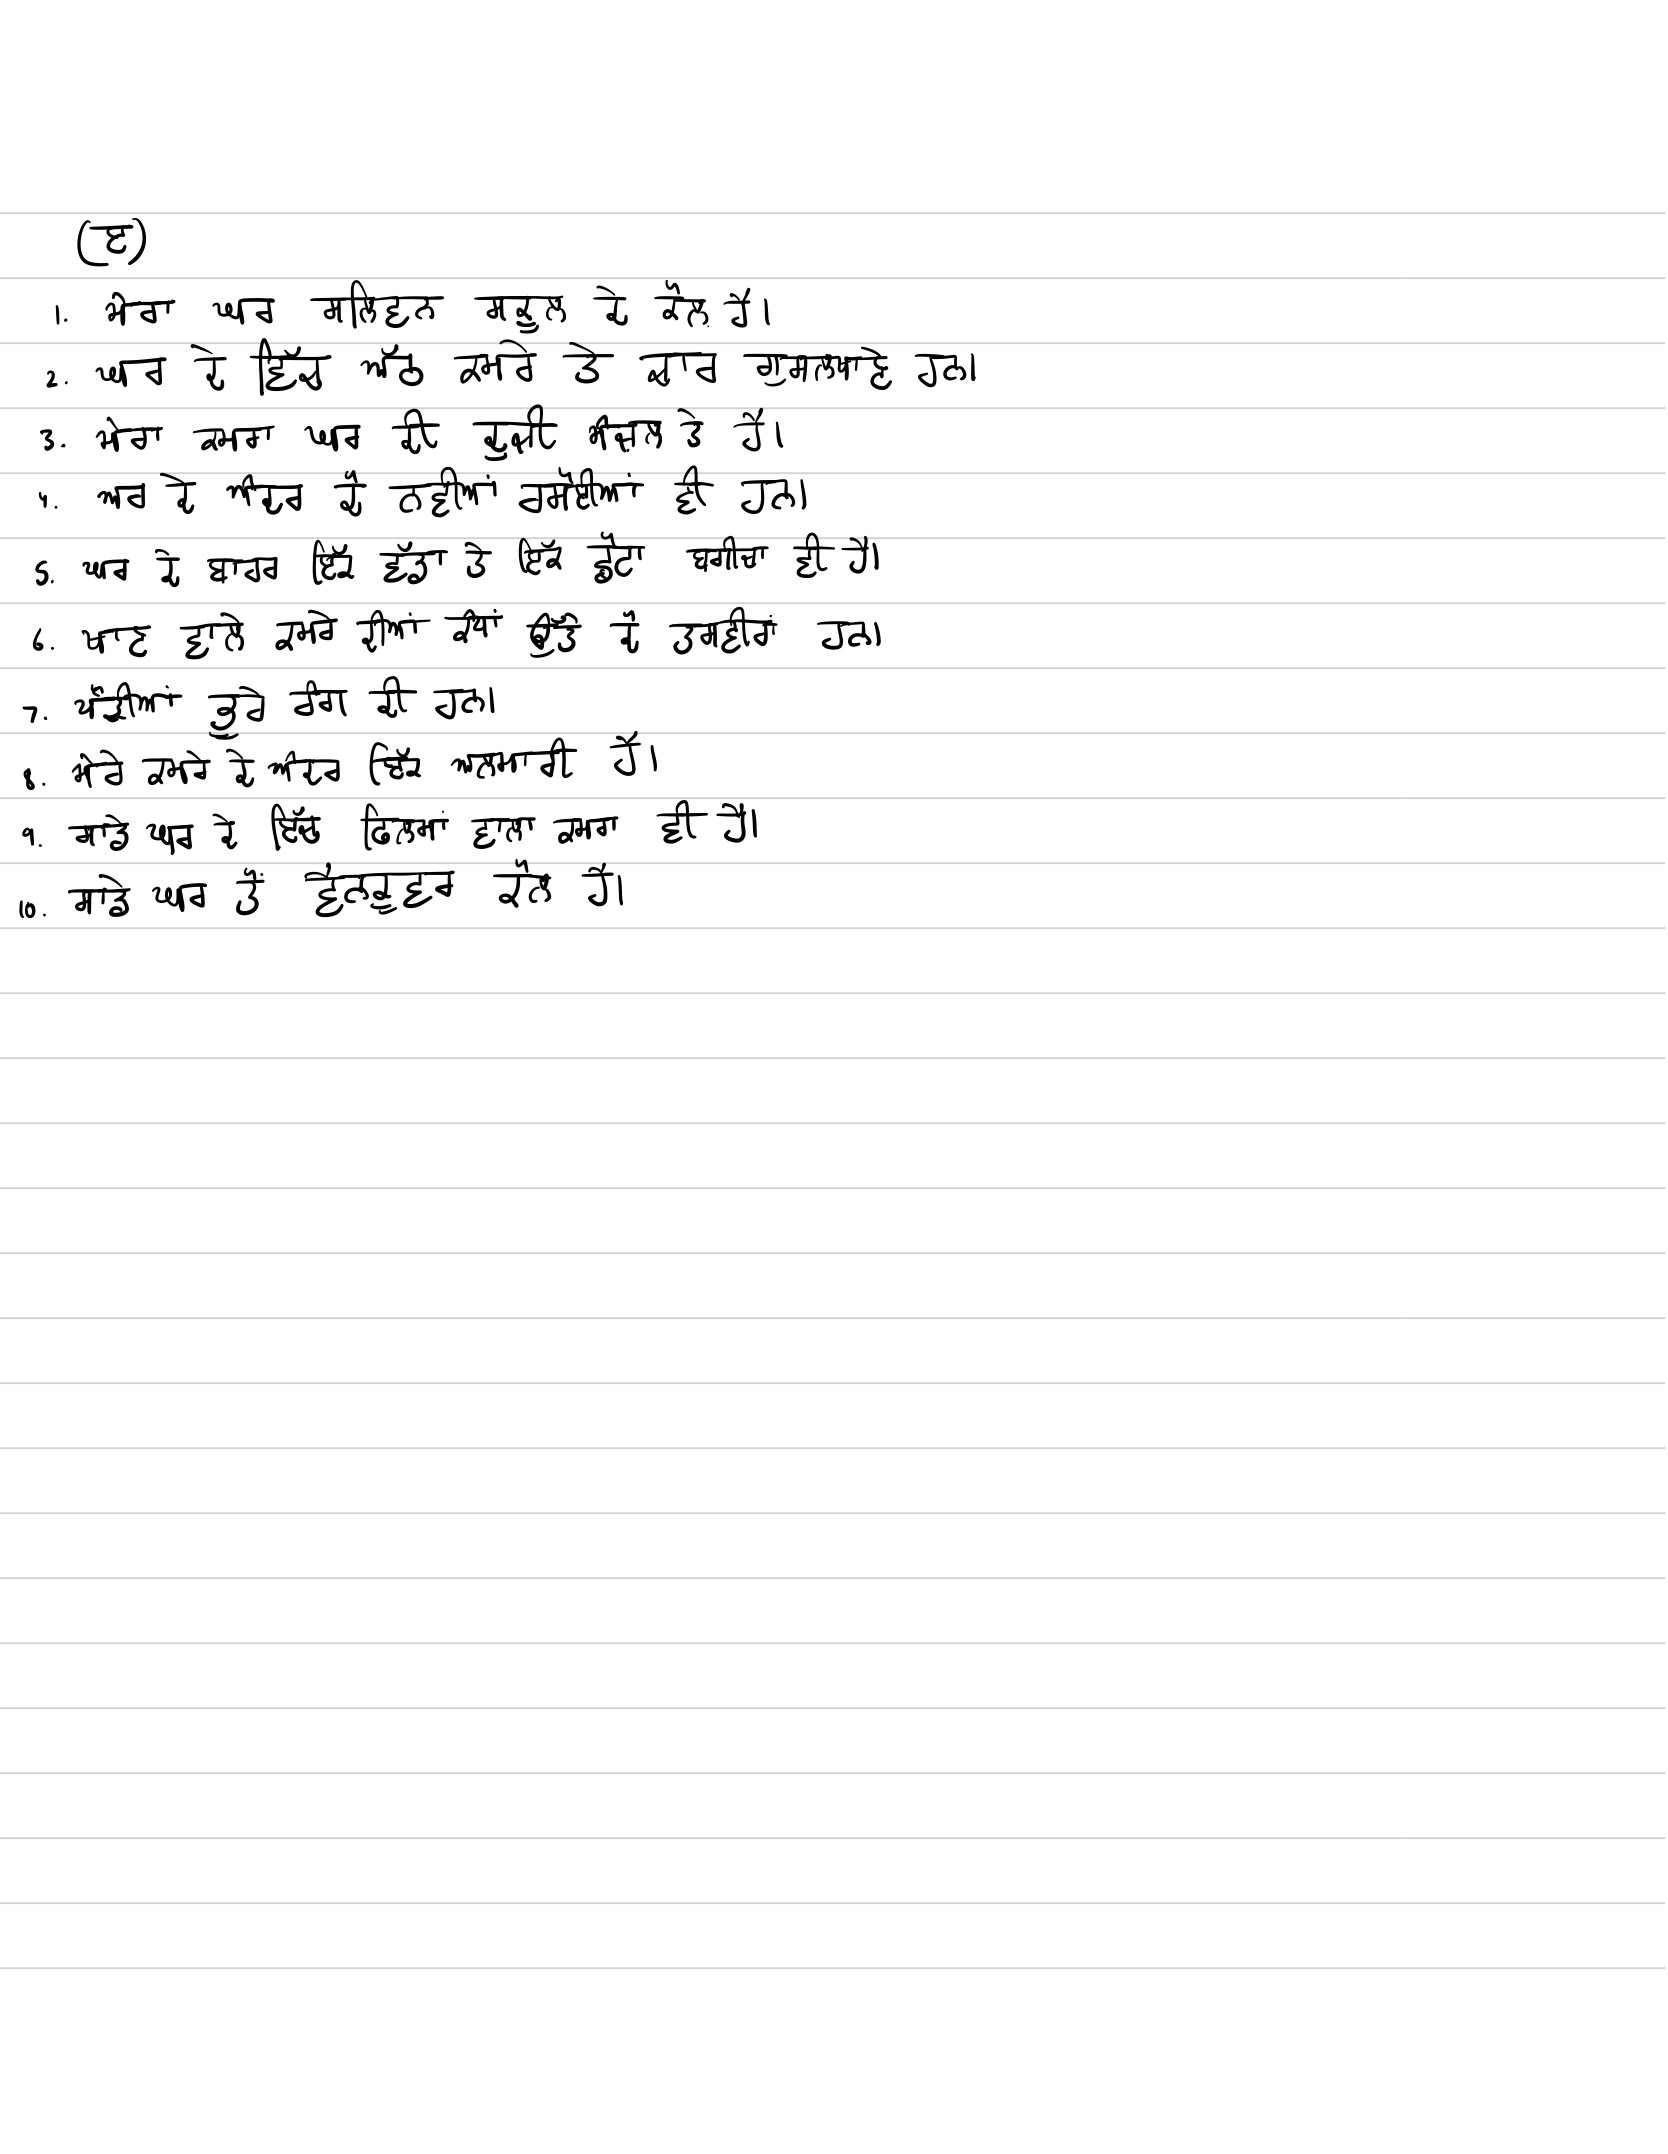 (ੲ)
1. ਮੇਰਾ ਘਰ ਸਲਿਵਨ ਸਕੂਲ ਦੇ ਕੋਲ ਹੈ।
2. ਘਰ ਦੇ ਵਿੱਚ ਅੱਠ ਕਮਰੇ ਤੇ ਚਾਰ ਗੁਸਲਖਾਣੇ ਹਨ।
3. ਮੇਰਾ ਕਮਰਾ ਘਰ ਦੀ ਦੂਜੀ ਮੰਜ਼ਲ ਤੇ ਹੈ।
4. ਘਰ ਦੇ ਅੰਦਰ ਦੋ ਨਵੀਆਂ ਰਸੋਈਆਂ ਵੀ ਹਨ।
5. ਘਰ ਦੇ ਬਾਹਰ ਇੱਕ ਵੱਡਾ ਤੇ ਇੱਕ ਛੋਟਾ ਬਗੀਚਾ ਵੀ ਹੈ।
6. ਖਾਣ ਵਾਲੇ ਕਮਰੇ ਦੀਆਂ ਕੰਧਾਂ ਉੱਤੇ ਦੋ ਤਸਵੀਰਾਂ ਹਨ।
7. ਪੌੜੀਆਂ ਭੂਰੇ ਰੰਗ ਦੀ ਹਨ।
8. ਮੇਰੇ ਕਮਰੇ ਦੇ ਅੰਦਰ ਇੱਕ ਅਲਮਾਰੀ ਹੈ।
9. ਸਾਡੇ ਘਰ ਦੇ ਵਿੱਚ ਫਿਲਮਾਂ ਵਾਲਾ ਕਮਰਾ ਵੀ ਹੈ।
10. ਸਾਡੇ ਘਰ ਤੋਂ ਵੈਨਕੂਵਰ ਕੋਲ ਹੈ।